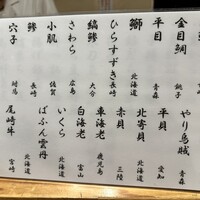 金目鯛 銚子
平目 青森
鰤 北海道
ひらすずき 長崎
縞鯵 大分
さわら 広島
小肌 佐賀
鯵 長崎
穴子 対馬
やり烏賊 青森
平貝 愛知
北寄貝 北海道
赤貝 三陸
車海老 鹿児島
白海老 富山
いくら 北海道
ばふん雲丹 北海道
尾崎牛 宮崎